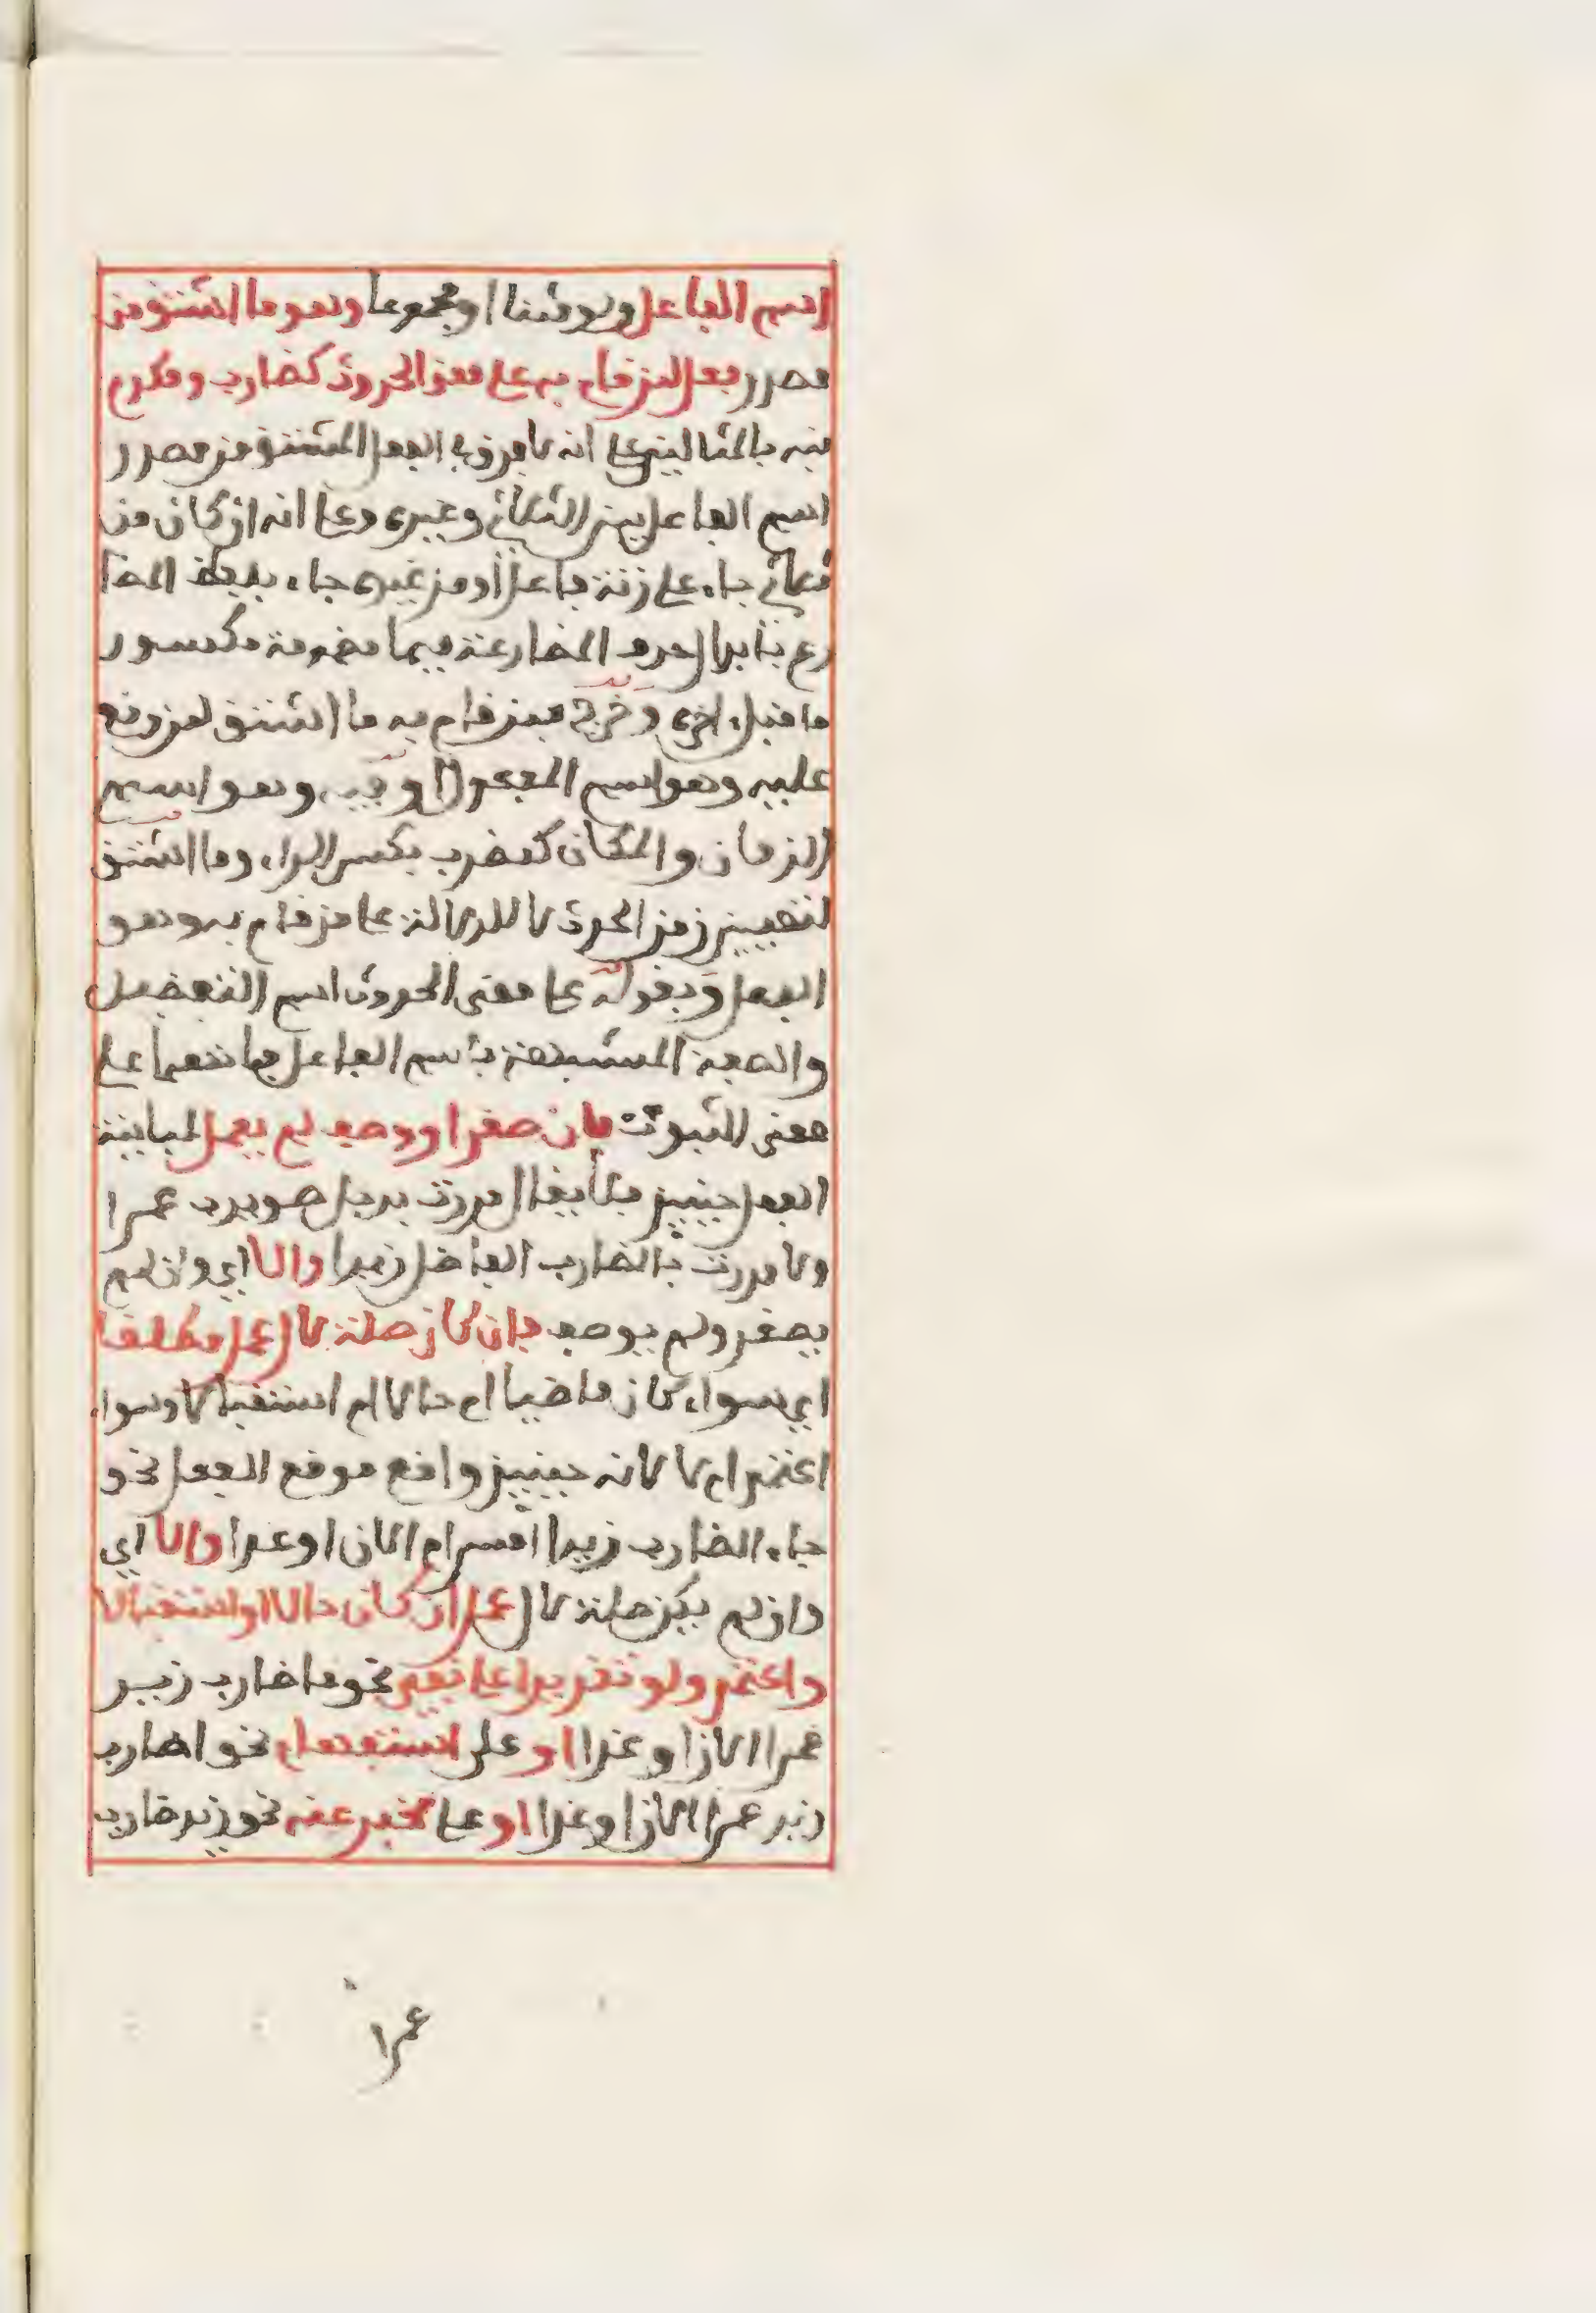 اسم الفاعل ولو مثنا او مجموعا وهو ما اشتق من
مصدر فعل لمن قام به على معنى الحدوث كضارب ومكرم
نبه بالمثالين على انه لا فرق في الفعل المشتق من مصدره
اسم الفاعل بين الثلاثي وغيره وعلى انه ان كان من
ثلاثي جاء على زنة فاعل او من غيره جاء بلفظ المضا
رع بابدال حرف المضارعة ميما مضمومة مكسور
ما قبل اخره وخرج بمن قام به ما اشتق لمن وقع
عليه وهو اسم المفعول او فيه وهو اسم
الزمان والمكان كمضرب بكسر الراء وما اشتق
لتعيين زمن الحدث لا للدلالة على من قام به وهو
الفعل وبقوله على معنى الحدوث اسم التفضيل
والصفة المشبهة باسم الفاعل فانهما على
معنى الثبوت فان صغر او وصف لم يعمل لمباينة
الفعل حينيذ فلا يقال مررت برجل ضويرب عمرا
ولا مررت بالضارب الفاضل زيدا والا اي وان لم
يصغر ولم يوصف فان كان صلة لال عمل مطلقا
اي سواء كان ماضيا ام حالا ام استقبالا وسواء
اعتمد ام لا لانه حينيذ واقع موقع الفعل نحو
جاء الضارب زيدا امس ام الان او غدا والا اي
وان لم يكن صلة لال عمل ان كان حالا او استقبالا
واعتمد ولو تقديرا على نفي نحو ما ضارب زيد
عمرا الان او غدا او على استفهام نحو اضارب
زيد عمرا الان او غدا او على مخبر عنه نحو زيد ضارب
عمرا